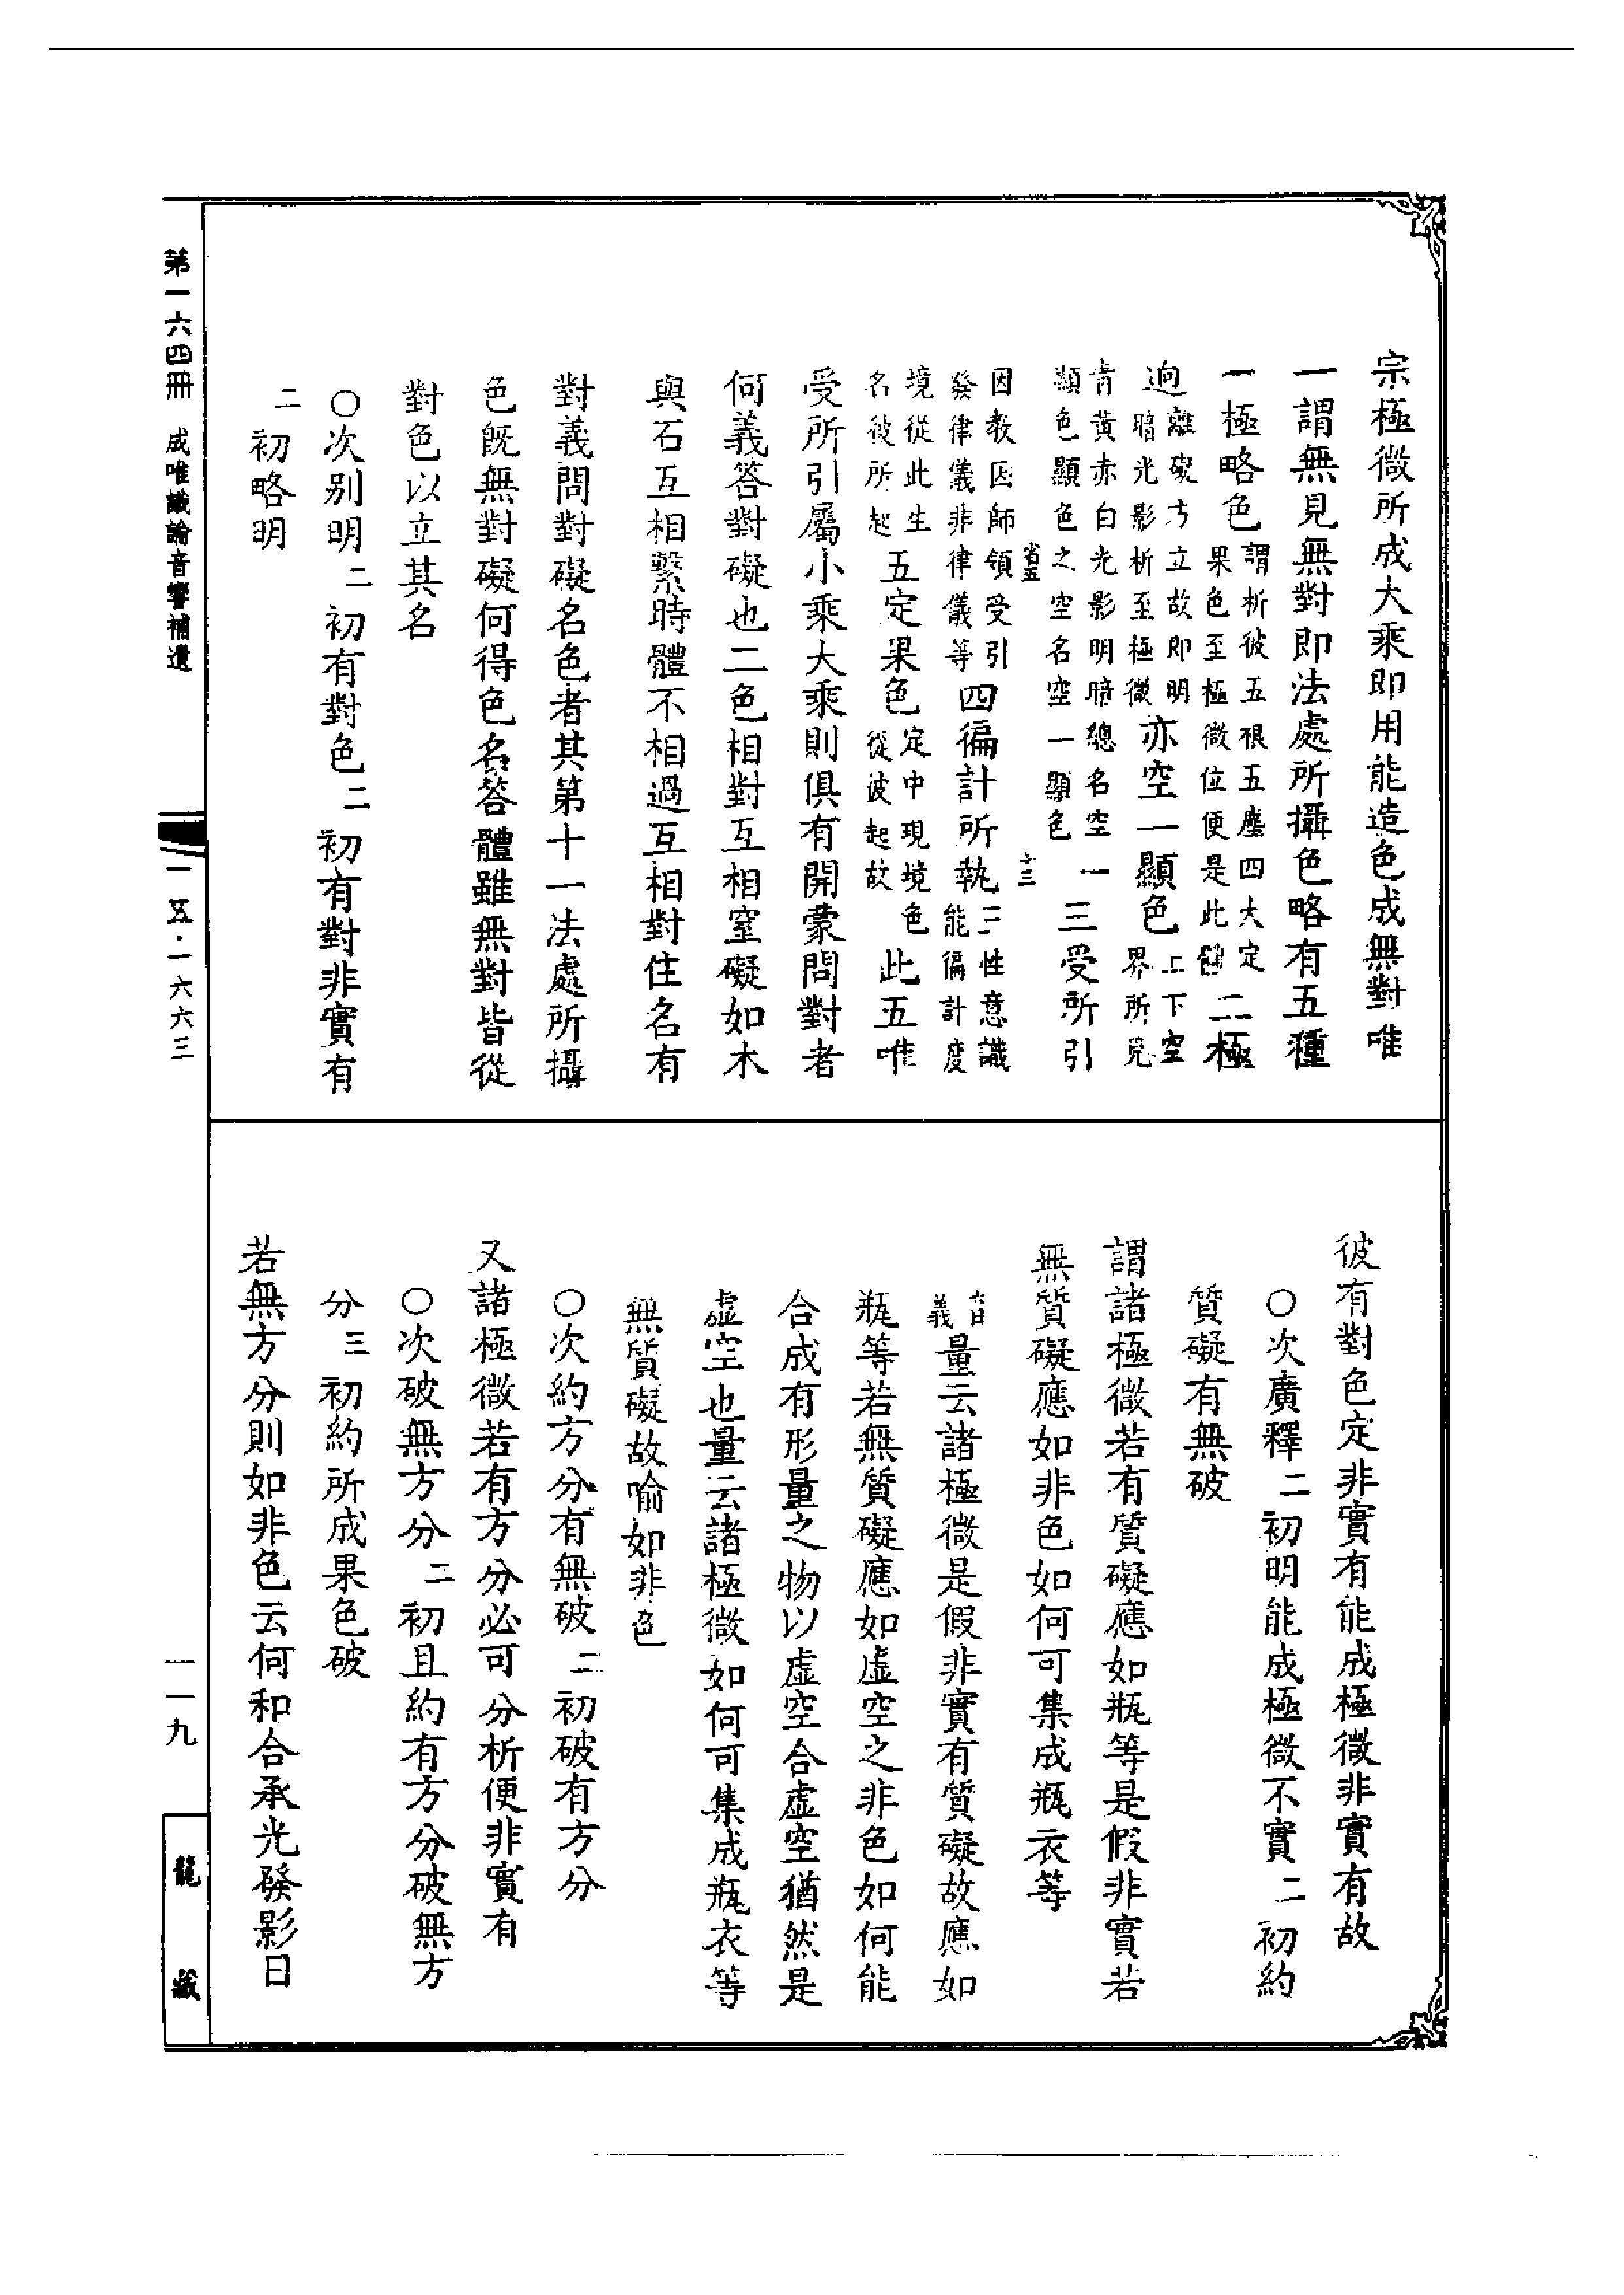 宗極微所成大乘即用能造色成無對唯
一謂無見無對即法處所攝色略有五種
一極略色謂析彼五根五塵四大定果色至極微位便是此體二極
迥離礙方立故即明暗光影析至極微亦空一顯色上下空界所見
青黃赤白光影明暗總名空一顯色顯色之空名空一顯色三受所引
因教因師領受引發律儀非律儀等四徧計所執三性意識能徧計度
境從此生名彼所起五定果色定中現境色從彼起故此五唯
受所引屬小乘大乘則俱有開蒙問對者
何義答對礙也二色相對互相窒礙如木
與石互相繫時體不相過互相對住名有
對義問對礙名色者其第十一法處所攝
色既無對礙何得色名答體雖無對皆從
對色以立其名
○次别明二初有對色二初有對非實有
二初略明
彼有對色定非實有能成極微非實有故
○次廣釋二初明能成極微不實二初約
質礙有無破
謂諸極微若有質礙應如瓶等是假非實若
無質礙應如非色如何可集成瓶衣等
義曰量云諸極微是假非實有質礙故應如
瓶等若無質礙應如虛空之非色如何能
合成有形量之物以虛空合虛空猶然是
虛空也量云諸極微如何可集成瓶衣等
無質礙故喻如非色
○次約方分有無破二初破有方分
又諸極微若有方分必可分析便非實有
○次破無方分二初且約有方分破無方
分三初約所成果色破
若無方分則如非色云何和合承光發影日
第一六四冊 成唯識論音響補遺
一一五·一六六三
一一九
龍藏